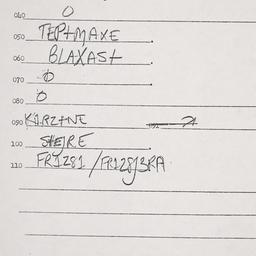 040 O
050 TEPTMAXE.
060 BLAXAST.
070 ϕ.
080 O
090 K1RZTNE
100 SHEJRE.
110 FR1281 / FR128J3RA